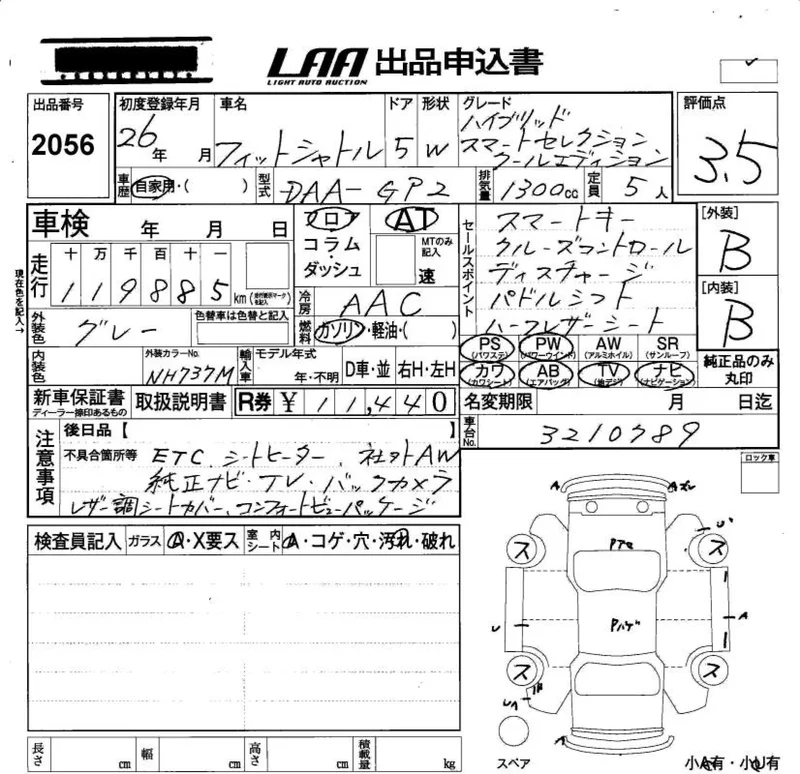 LAA 出品申込書
LIGHT AUTO AUCTION
出品番号
2056
初度登録年月
26年 月
車名
フィットシャトル
ドア
5
形状
W
グレード
ハイブリッド
スマートセレクション
クールエディション
評価点
3.5
車歴
自家用・( )
型式
DAA-GP2
排気量
1300cc
定員
5人
車検 年 月 日
フロア
コラム・ダッシュ
AT
MTのみ記入
速
セールスポイント
スマートキー
クルーズコントロール
ディスチャージ
パドルシフト
ハーフレザーシート
[外装]
B
[内装]
B
現在色を記入→
走行
十 万 千 百 十 一
119885 km
冷房
AAC
外装色
グレー
色替車は色替と記入
燃料
ガソリン・軽油・( )
PS
(パワステ)
PW
(パワーウインド)
AW
(アルミホイル)
SR
(サンルーフ)
カワ
(カワシート)
AB
(エアバッグ)
TV
(地デジ)
ナビ
(ナビゲーション)
純正品のみ
丸印
内装色
外装カラーNo.
NH737M
輸入車
モデル年式
年・不明
D車・並
右H・左H
新車保証書
ディーラー捺印あるもの
取扱説明書
R券 ¥ 11,440
名変期限 月 日迄
車台No.
3210789
注意事項
後日品【
】
不具合箇所等
ETC、シートヒーター、社外AW
純正ナビ・TV・バックカメラ
レザー調シートカバー、コンフォートビューパッケージ
ロック車
検査員記入
ガラス
A・X要ス
室内シート
A・コゲ・穴・汚れ・破れ
A
ス
ス
U
A
ス
ス
A
スペア
小A有・小U有
長さ cm
幅 cm
高さ cm
積載量 kg